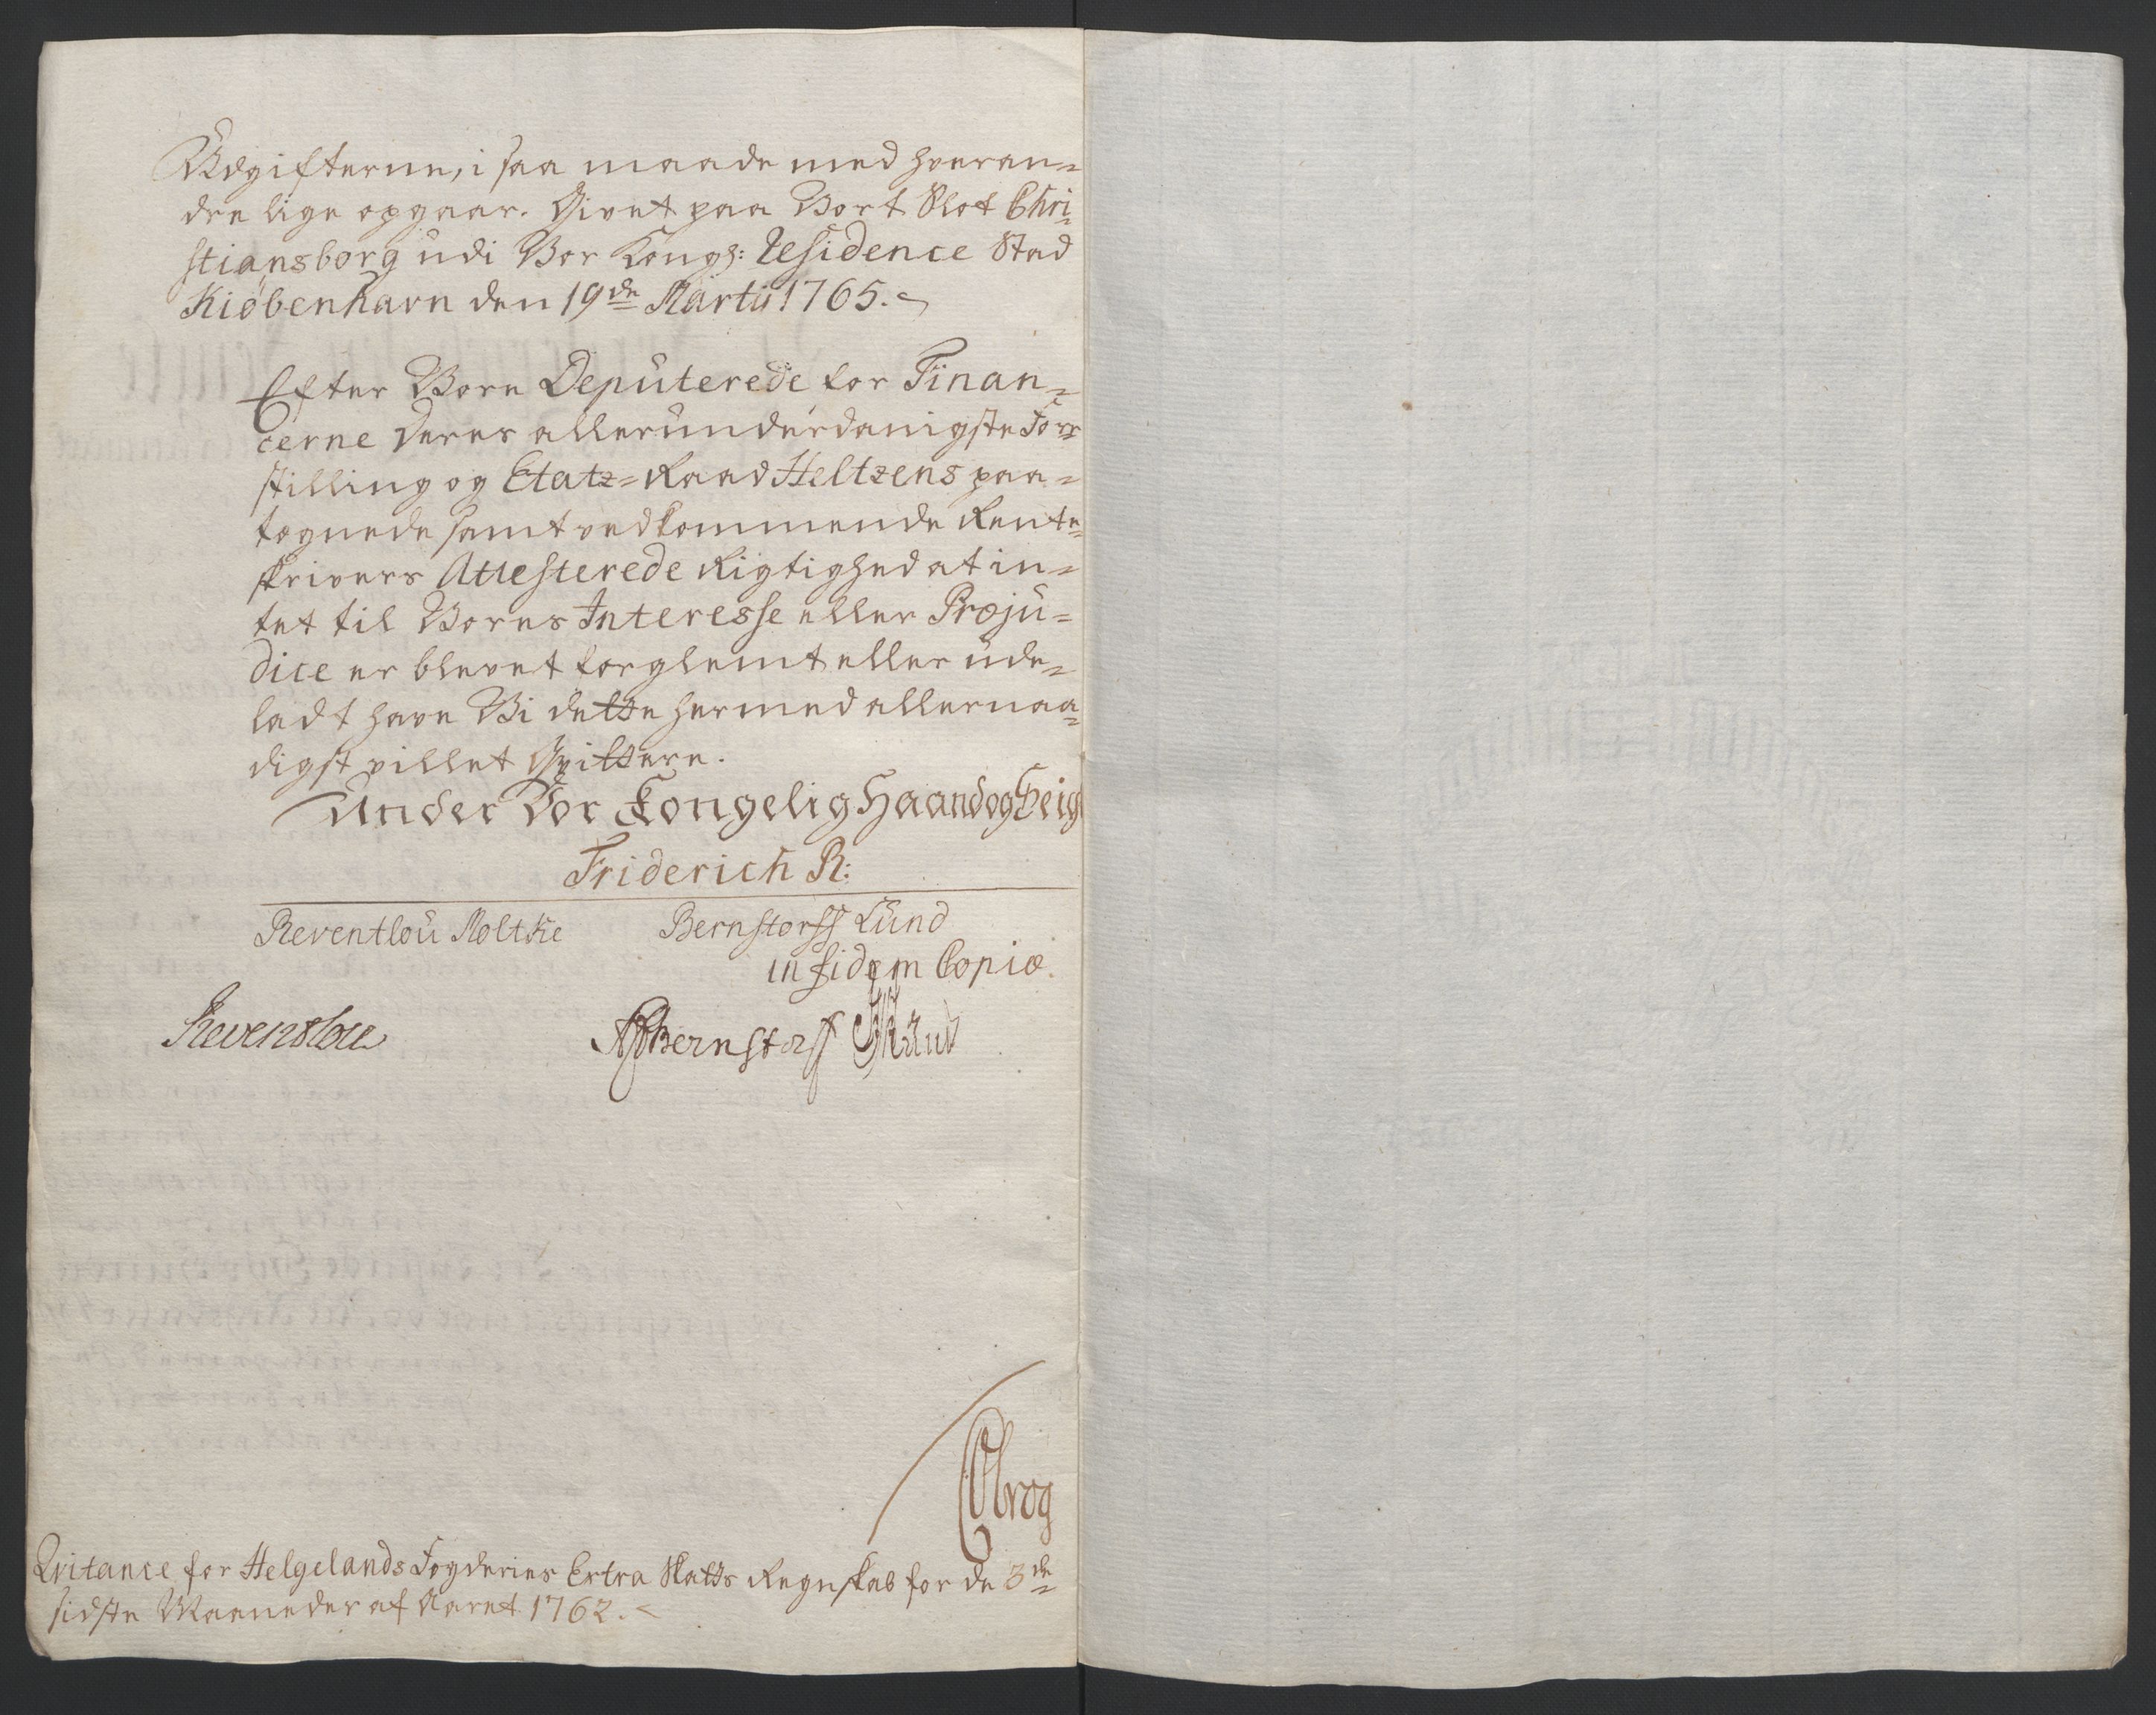 Udgifterne, i saa maade med hveran-
dre lige opgaar. Givet paa Vort Slot Chri-
stiansborg udi Vor Kongl: Residence Stad
Kiøbenhavn den 19de Martii 1765.
Efter Vore Deputerede for Finan-
cerne Deres allerunderdanigste For-
stilling og Etatz-Raad Heltzens paa-
tegnede samt vedkommende Rente-
skrivers Attesterede Rigtighed at in-
tet til Vores Interesse eller Præju-
dice er blevet forglemt eller ude-
ladt have Vi dette hermed allernaa-
digst villet Qvittere.
Under Vor Kongelig Haand og Seigl
Friderich R:
Reventlou Moltke Bernstorff Lund
in fidem Copiæ.
Reventlou
Bernstorff Lund
Qvitance for Helgelands Fogderies Extra Skatts Regnskab for de 3de
sidste Maaneder af Aaret 1762.